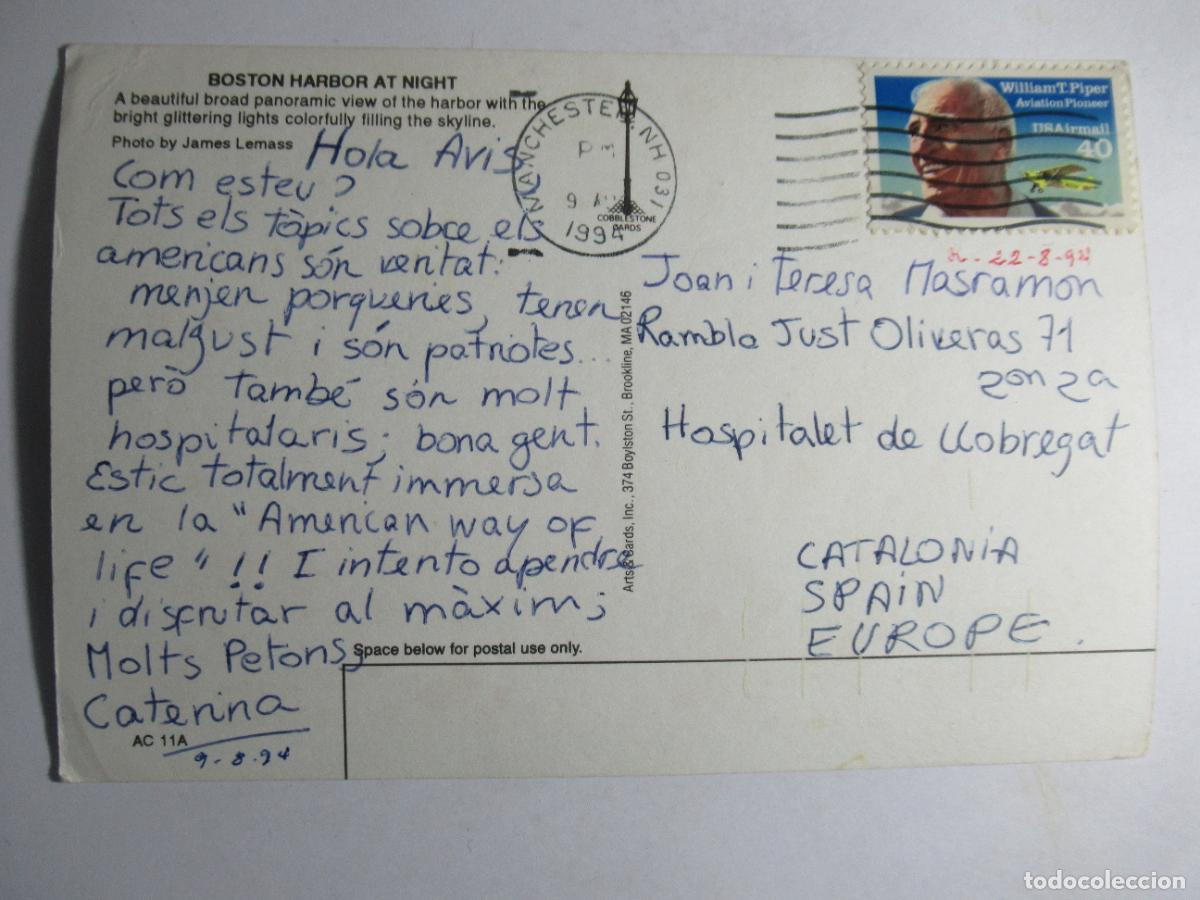 BOSTON HARBOR AT NIGHT
A beautiful broad panoramic view of the harbor with the
bright glittering lights colorfully filling the skyline.
Photo by James Lemass
Hola Avis
Com esteu?
Tots els tòpics sobre els
americans són veritat:
menjen porqueries, tenen
malgust i són patriotes...
però també són molt
hospitalaris; bona gent.
Estic totalment immersa
en la "American way of
life"!! I intento apendre
i disfrutar al màxim;
Molts Petons,
Caterina
AC 11A
9-8-94
MANCHESTER, NH 031
PM
9
1994
COBBLESTONE
CARDS
Arts & Cards, Inc., 374 Boylston St., Brookline, MA 02146
William T. Piper
Aviation Pioneer
USAirmail
40
22-8-94
Joan i Teresa Masramon
Rambla Just Oliveras 71
2on 2a
Hospitalet de Llobregat
CATALONIA
SPAIN
EUROPE.
Space below for postal use only.
todocoleccion